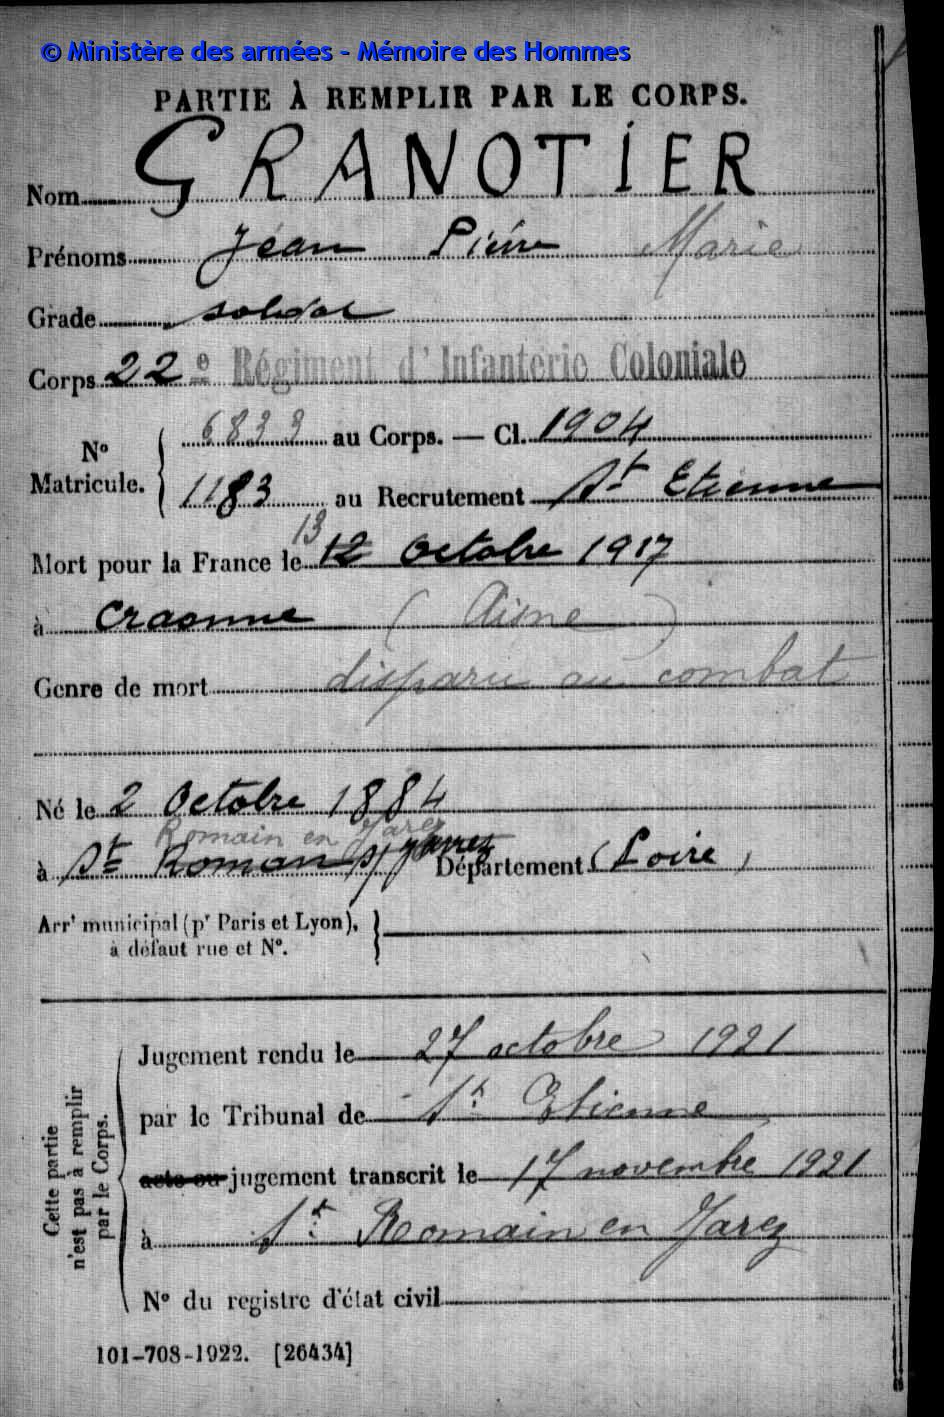 © Ministère des armées - Mémoire des Hommes
PARTIE À REMPLIR PAR LE CORPS.
Nom GRANOTIER
Prénoms Jean Pierre Marie
Grade soldat
Corps 22e Régiment d'Infanterie Coloniale
N° Matricule. { 6833 au Corps. — Cl. 1904
1183 au Recrutement St Etienne
13
Mort pour la France le 12 Octobre 1917
à Craonne (Aisne)
Genre de mort disparu au combat
Né le 2 Octobre 1884
Romain en Jarez
à St Roman s/ Jarrez Département (Loire)
Arrt municipal (pr Paris et Lyon), }
à défaut rue et N°.
Cette partie
n'est pas à remplir
par le Corps.
Jugement rendu le 27 octobre 1921
par le Tribunal de St Etienne
acte ou jugement transcrit le 17 novembre 1921
à St Romain en Jarez
N° du registre d'état civil
101-708-1922. [26434]